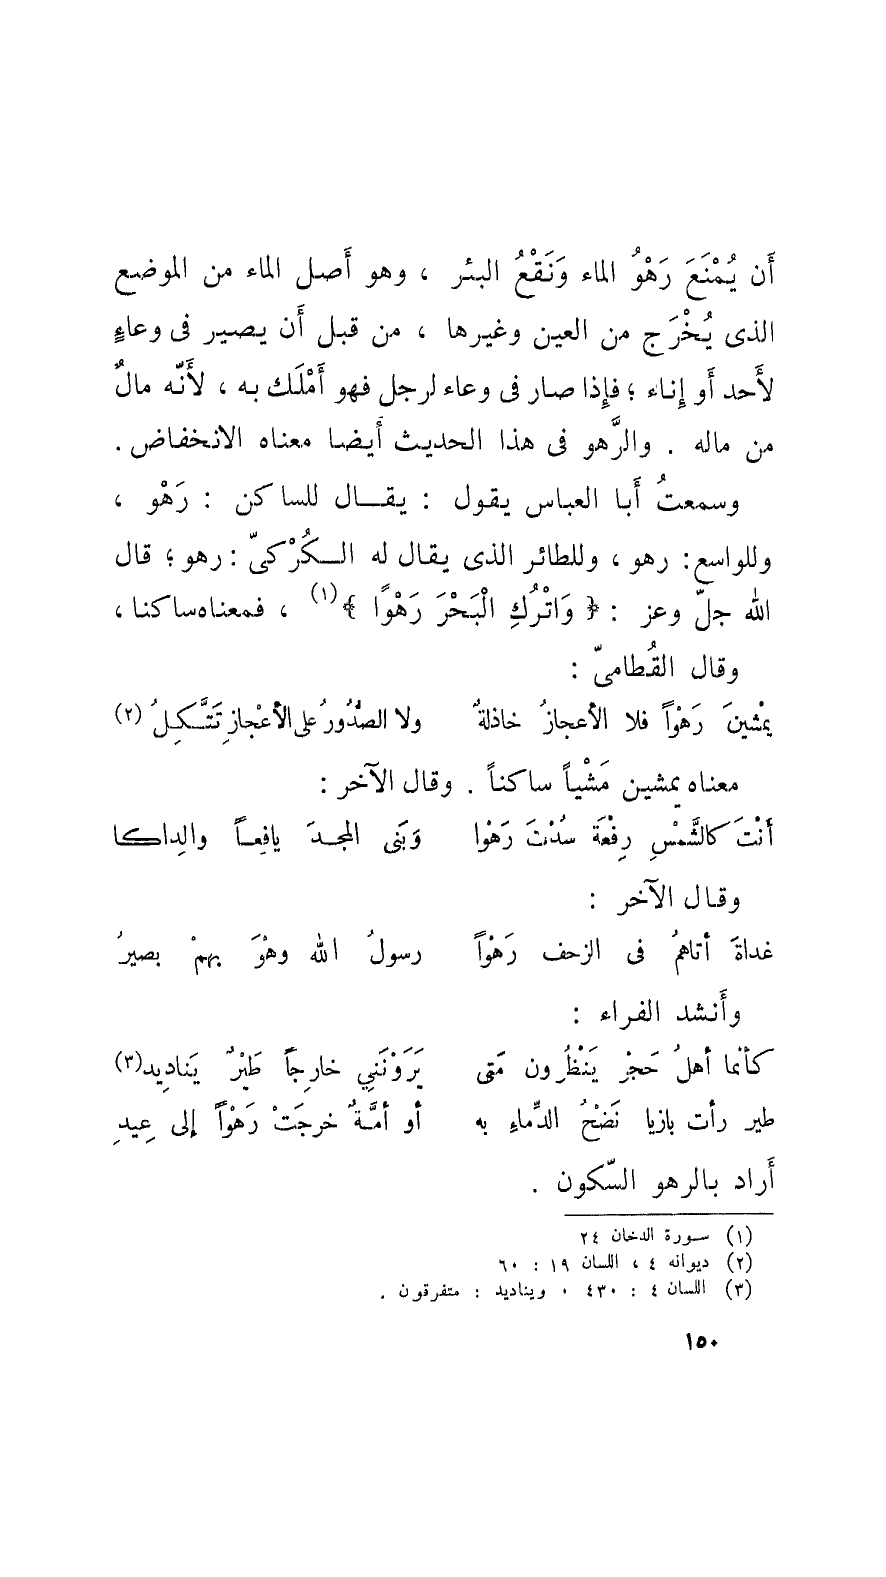 أَن يُمْنَعَ رَهْوُ الماء وَنَقْعُ البئر ، وهو أَصل الماء من الموضع
الذى يُخْرَج من العين وغيرها ، من قبل أَن يصير فى وعاءٍ
لأَحد أَو إِناء ؛ فإِذا صار فى وعاء لرجل فهو أَمْلَك به ، لأَنّه مالٌ
من ماله . والرَّهو فى هذا الحديث أَيضا معناه الانخفاض .
وسمعتُ أَبا العباس يقول : يقال للساكن : رَهْو ،
وللواسع : رهو ، وللطائر الذى يقال له الكُرْكىّ : رهو ؛ قال
الله جلّ وعز : ﴿ وَاتْرُكِ الْبَحْرَ رَهْوًا ﴾(١) ، فمعناه ساكنا ،
وقال القُطامىّ :
يمْشينَ رَهْواً فلا الأعجازُ خاذلةٌ ولا الصُّدُورُ على الأعْجازِ تَتَّكِلُ (٢)
معناه يمشين مَشْياً ساكناً . وقال الآخر :
أنْتَ كالشَّمْسِ رِفْعَة سُدْتَ رَهْوا وَبَنى المجدَ يافِعاً والِداكا
وقال الآخر :
غداةَ أتاهمُ فى الزحف رَهْواً رسولُ الله وهْوَ بهمْ بصيرُ
وأَنشد الفراء :
كأنما أهلُ حَجْرٍ يَنْظُرون مَتى يَرَوْنَنِي خارِجاً طَيْرٌ يَنادِيد(٣)
طير رأت بازيا نَضْحُ الدِّماءِ به أو أمَّةٌ خرجَتْ رَهْواً إلى عِيدِ
أَراد بالرهو السّكون .
(١) سورة الدخان ٢٤
(٢) ديوانه ٤ ، اللسان ١٩ : ٦٠
(٣) اللسان ٤ : ٤٣٠ . ويناديد : متفرقون .
١٥٠